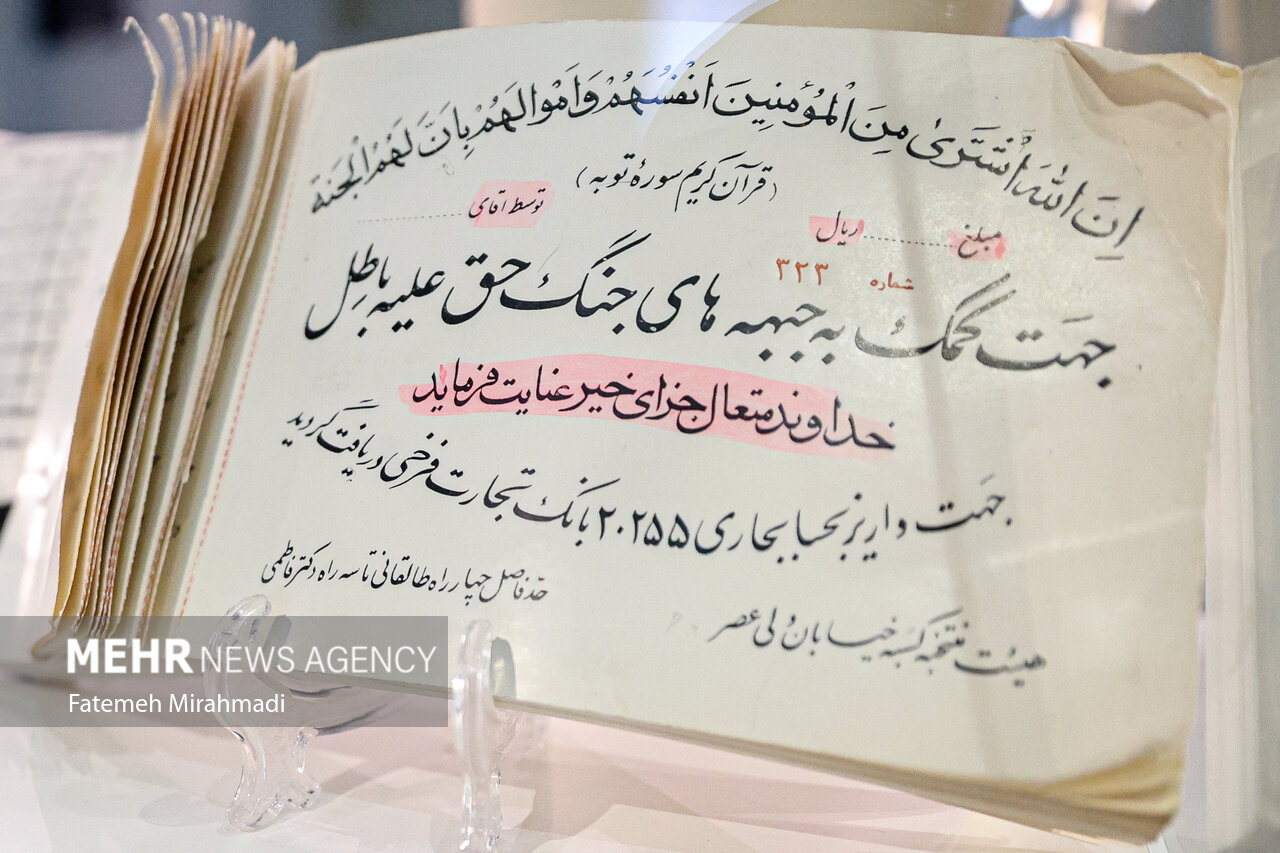 اِنَ اللّٰهَ اشْتَرَىٰ مِنَ الْمُؤمِنينَ اَنْفُسَهُمْ وَاَمْوالَهُمْ بِاَنَّ لَهُمُ الْجَنة
(قرآن کریم سورهٔ توبه)
مبلغ .............. ریال توسط آقای ..............
شماره ۳۲۳
جهت کمک به جبهه های جنگ حق علیه باطل
خداوند متعال جزای خیر عنایت فرماید
جهت واریز بحساب جاری ۲۰۲۵۵ بانک تجارت فرخی دریافت گردید
هیئت منتخبه کسبه خیابان ولی عصر حد فاصل چهار راه طالقانی تا سه راه دکتر فاطمی
MEHR NEWS AGENCY
Fatemeh Mirahmadi